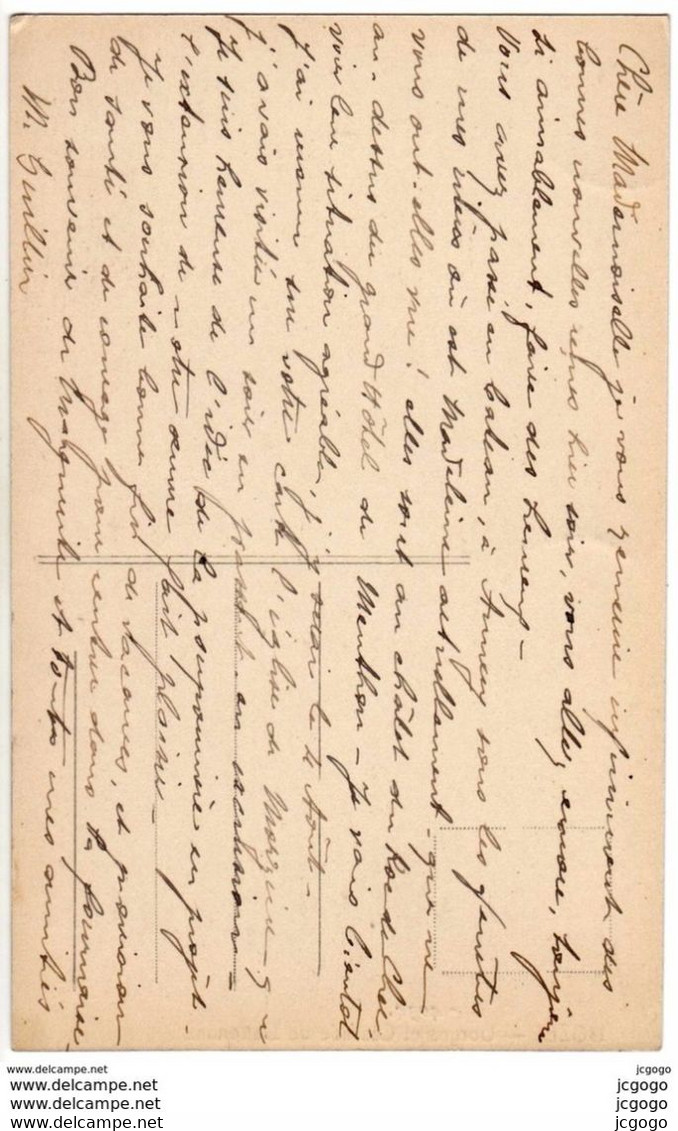 Chère Mademoiselle je vous remercie infiniment des
bonnes nouvelles reçues hier soir, vous allez encore, toujours
si aimablement, faire des heureux –
Vous avez passé en bateau, à Annecy sous les fenêtres
de mes nièces où est Madeleine actuellement – que ne
vous ont-elles vue! elles sont au châlet du Roc de Chère
au-dessus du grand Hôtel de Menthon – Je vais bientôt
voir leur situation agréable, j'y serai le 2 Août –
J'ai trouvé sur votre carte l'église de Morzine – que
j'avais visitée un soir en passant en excursion –
Je suis heureuse de l'idée de la pouponnière en projet
l'extension de notre oeuvre fait plaisir –
Je vous souhaite bonne fin de vacances, et provision
de santé et de courage pour rentrer dans la fournaise
Bon souvenir de Marguerite et toutes mes amitiés
M.
www.delcampe.net
www.delcampe.net
www.delcampe.net
www.delcampe.net
jcgogo
jcgogo
jcgogo
jcgogo